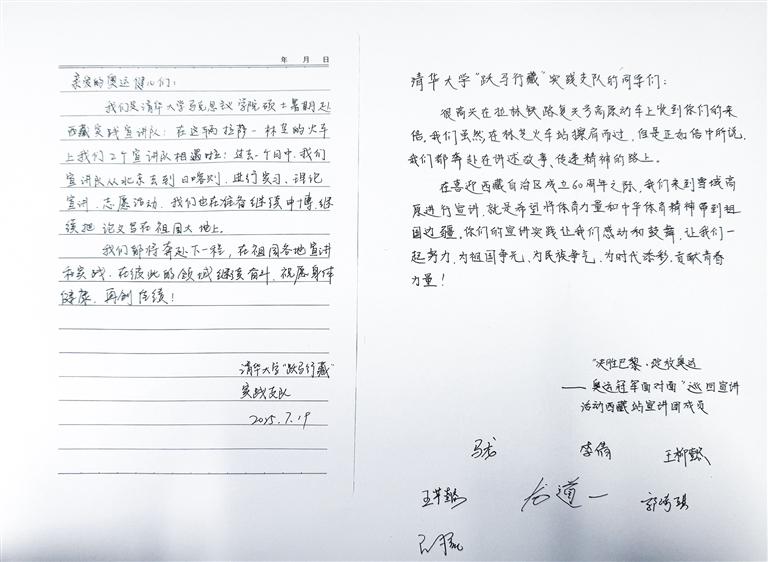 年 月 日
亲爱的奥运健儿们：
我们是清华大学马克思主义学院硕士暑期赴
西藏实践宣讲队；在这辆拉萨—林芝的火车
上我们2个宣讲队相遇啦；过去一个月中，我们
宣讲队从北京去到日喀则，进行实习、理论
宣讲、志愿活动，我们也在准备继续申博，继
续把论文写在祖国大地上。
我们都将奔赴下一程，在祖国各地宣讲
和实践，在彼此的领域继续奋斗，祝愿身体
健康，再创佳绩！
清华大学“跃马行藏”
实践支队
2025.7.19
清华大学“跃马行藏”实践支队的同学们：
很高兴在拉林铁路复兴号高原动车上收到你们的来
信，我们虽然在林芝火车站擦肩而过，但是正如信中所说，
我们都奔赴在讲述故事、传递精神的路上。
在喜迎西藏自治区成立60周年之际，我们来到雪域高
原进行宣讲，就是希望将体育力量和中华体育精神带到祖
国边疆。你们的宣讲实践让我们感动和鼓舞，让我们一
起努力，为祖国争光，为民族争气，为时代添彩，贡献青春
力量！
“决胜巴黎·绽放奥运
——奥运冠军面对面”巡回宣讲
活动西藏站宣讲团成员
马龙 李倩 王柳懿
王芊懿 郭崎琪